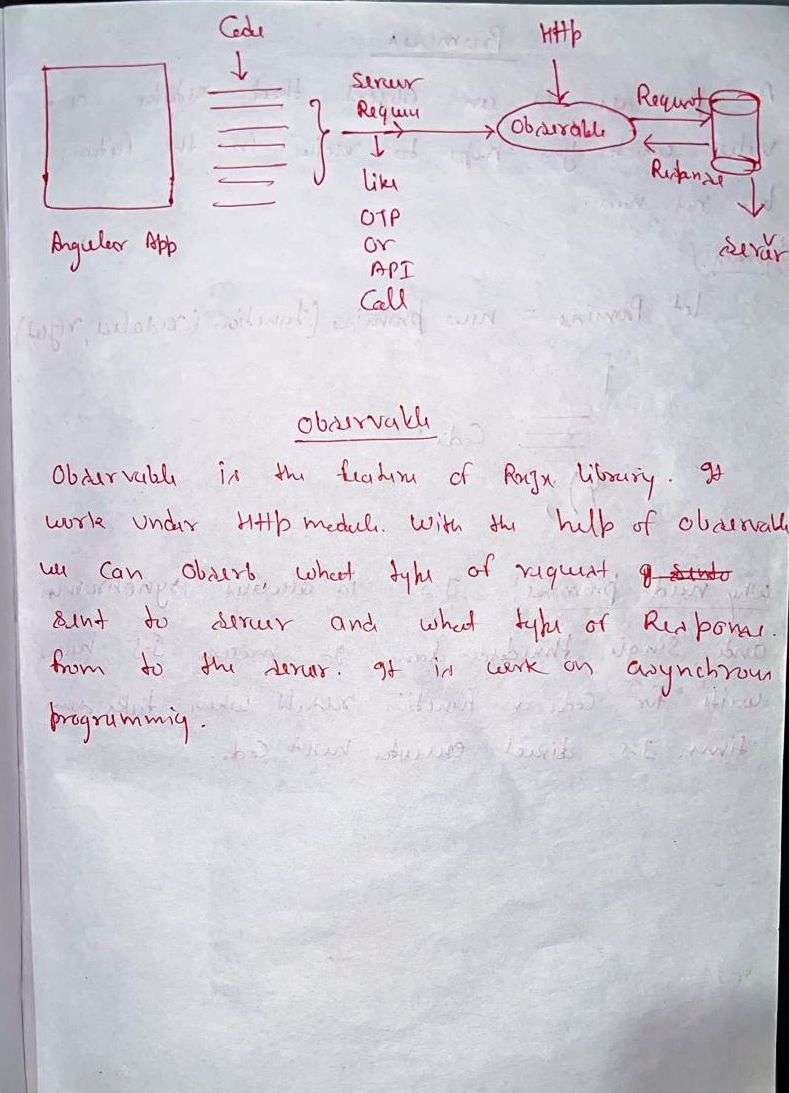 Code
HTTP
Server
Request
Observable
Request
Response
Like
OTP
Or
API
Call
Angular App
Server
Observable
Observable is the feature of Rxjx library. It
work under HTTP module. With the help of observable
we can Observb what type of request
sent to server and what type of Response.
from to the server. It is work on asynchrous
programmig.